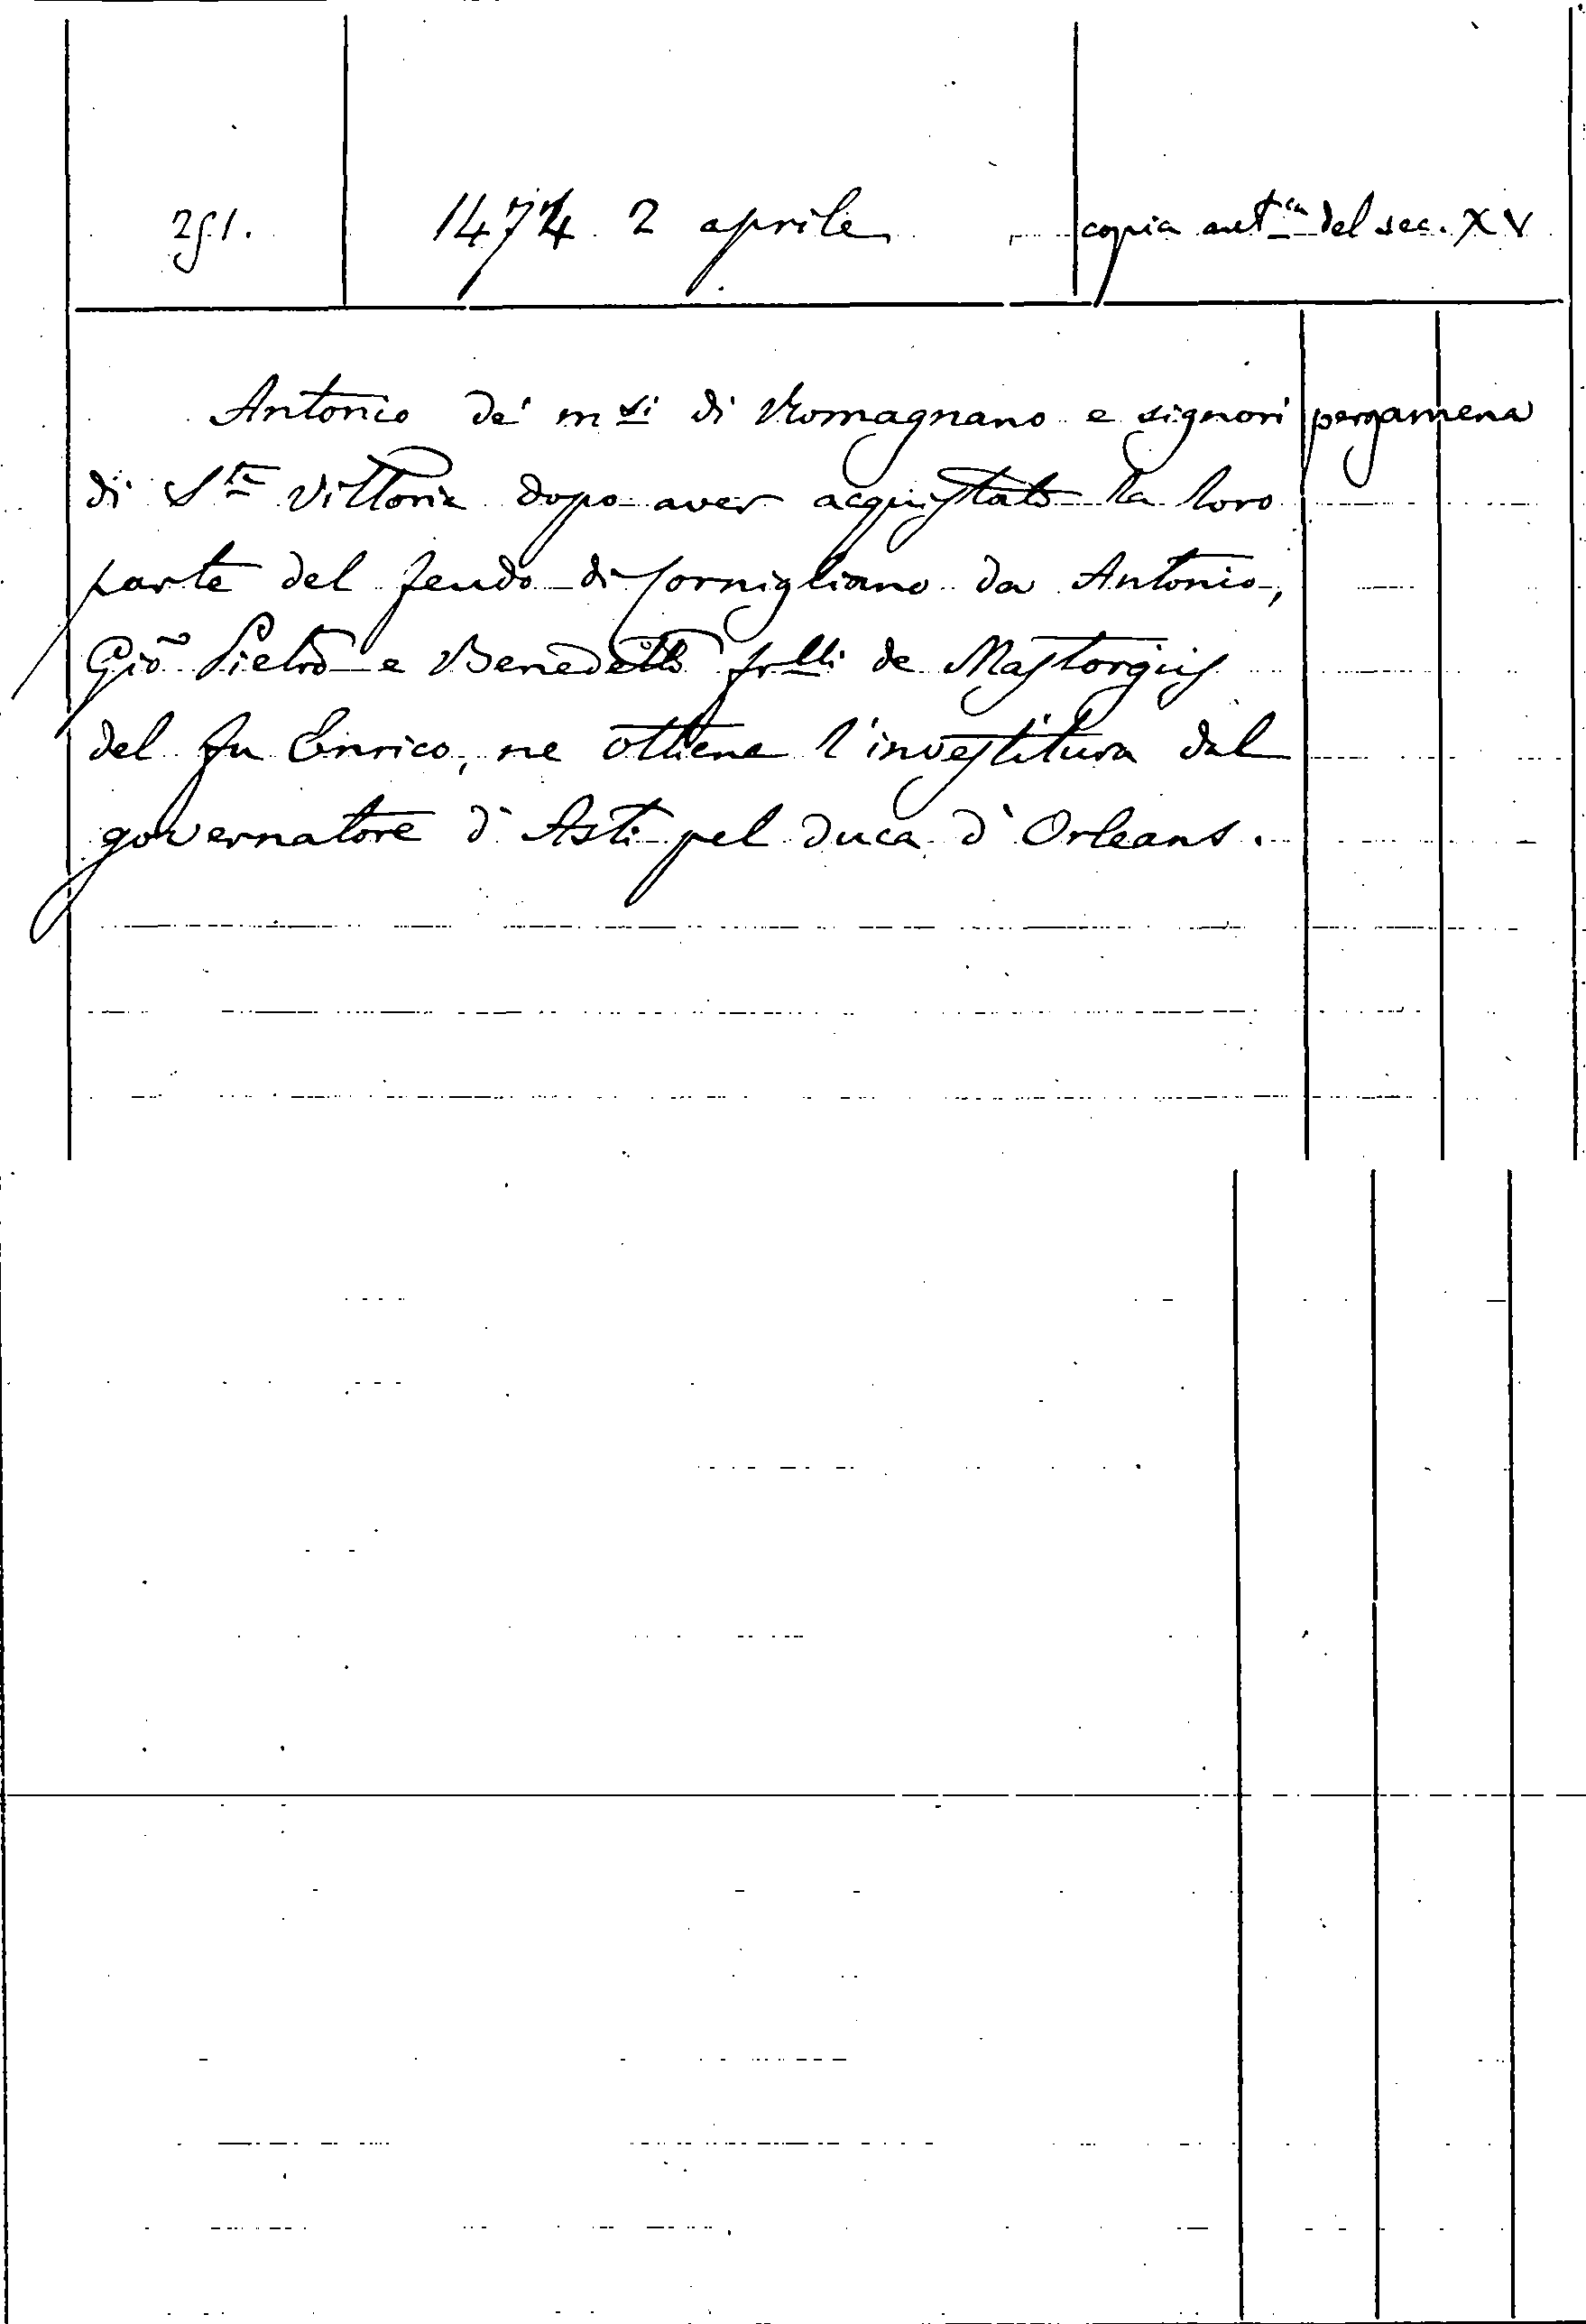 251. 1474 2 aprile copia aut.ca del sec. XV
Antonio de' m.si di Romagnano e signori pergamena
di S.ta Vittoria dopo aver acquistato la loro
parte del feudo di Cornigliano da Antonio,
Gio Pietro e Benedetto f.rlli de Mastorgiis
del fu Enrico, ne ottiene l'investitura dal
governatore d'Asti pel duca d'Orleans.